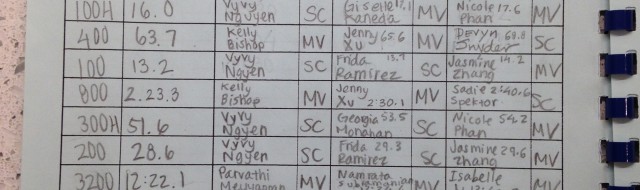 100H 16.0 Vyvy Nguyen SC Giselle 17.1 Kaneda MV Nicole 17.6 Phan MV
400 63.7 Kelly Bishop MV Jenny 65.6 Xu MV Devyn 68.8 Snyder SC
100 13.2 Vyvy Ngyen SC Frida 13.9 Ramirez SC Jasmine 14.2 Zhang MV
800 2.23.3 Kelly Bishop MV Jenny Xu 2:30.1 MV Sadie 2:40.6 Spektor SC
300H 51.6 Vyvy Ngyen SC Georgia 53.5 Monahan SC Nicole 54.2 Phan MV
200 28.6 Vyvy Ngyen SC Frida 29.3 Ramirez SC Jasmine 29.6 Zhang MV
3200 12:22.1 Parvathi MV Namrata MV Isabelle